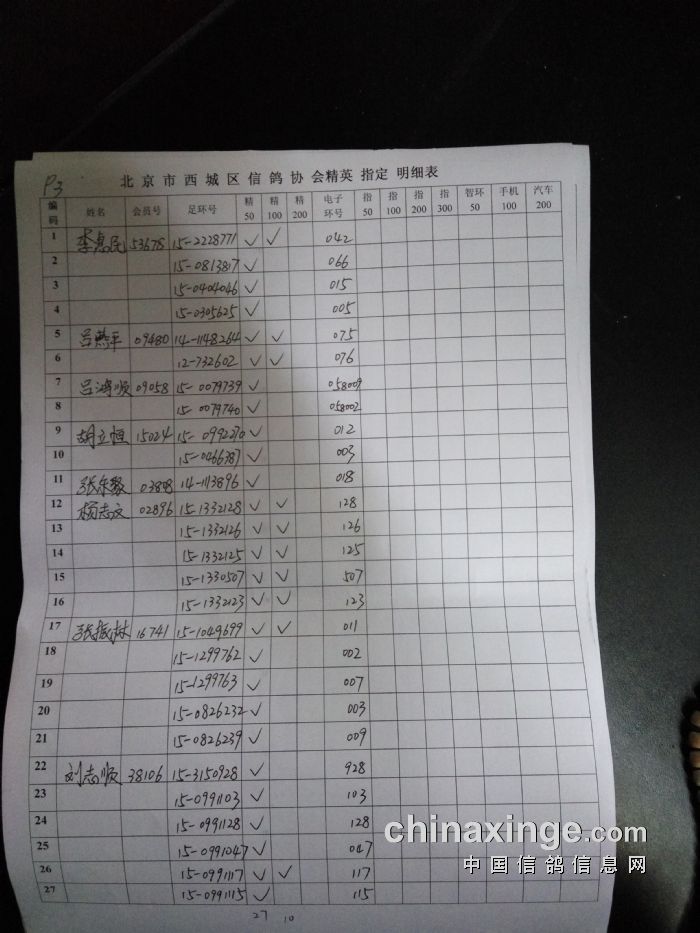 P3
北京市西城区信鸽协会精英 指定 明细表
编码 姓名 会员号 足环号 精50 精100 精200 电子环号 指50 指100 指200 指300 智环50 手机100 汽车200
1 李惠民 53678 15-2228771 ✓ ✓ 042
2 15-0813817 ✓ 066
3 15-0404046 ✓ 015
4 15-0305625 ✓ 005
5 吕燕平 09480 14-1148264 ✓ ✓ 075
6 12-732602 ✓ ✓ 076
7 吕鸿顺 09058 15-0079739 ✓ 058009
8 15-0079740 ✓ 058002
9 胡立恒 15024 15-0992270 ✓ 012
10 15-0466387 ✓ 003
11 14-1113896 ✓ 018
12 杨志文 02896 15-1332128 ✓ ✓ 128
13 15-1332126 ✓ ✓ 126
14 15-1332125 ✓ ✓ 125
15 15-1330507 ✓ ✓ 507
16 15-1332123 ✓ ✓ 123
17 张振林 16741 15-1049699 ✓ ✓ 011
18 15-1299762 ✓ 002
19 15-1299763 ✓ 007
20 15-0826232 ✓ 003
21 15-0826239 ✓ 009
22 刘志顺 38106 15-3150928 ✓ 928
23 15-0991103 ✓ 103
24 15-0991128 ✓ 128
25 15-0991047 ✓ 047
26 15-0991117 ✓ ✓ 117
27 15-0991115 ✓ 115
27 10
chinaxinge.com
中国信鸽信息网